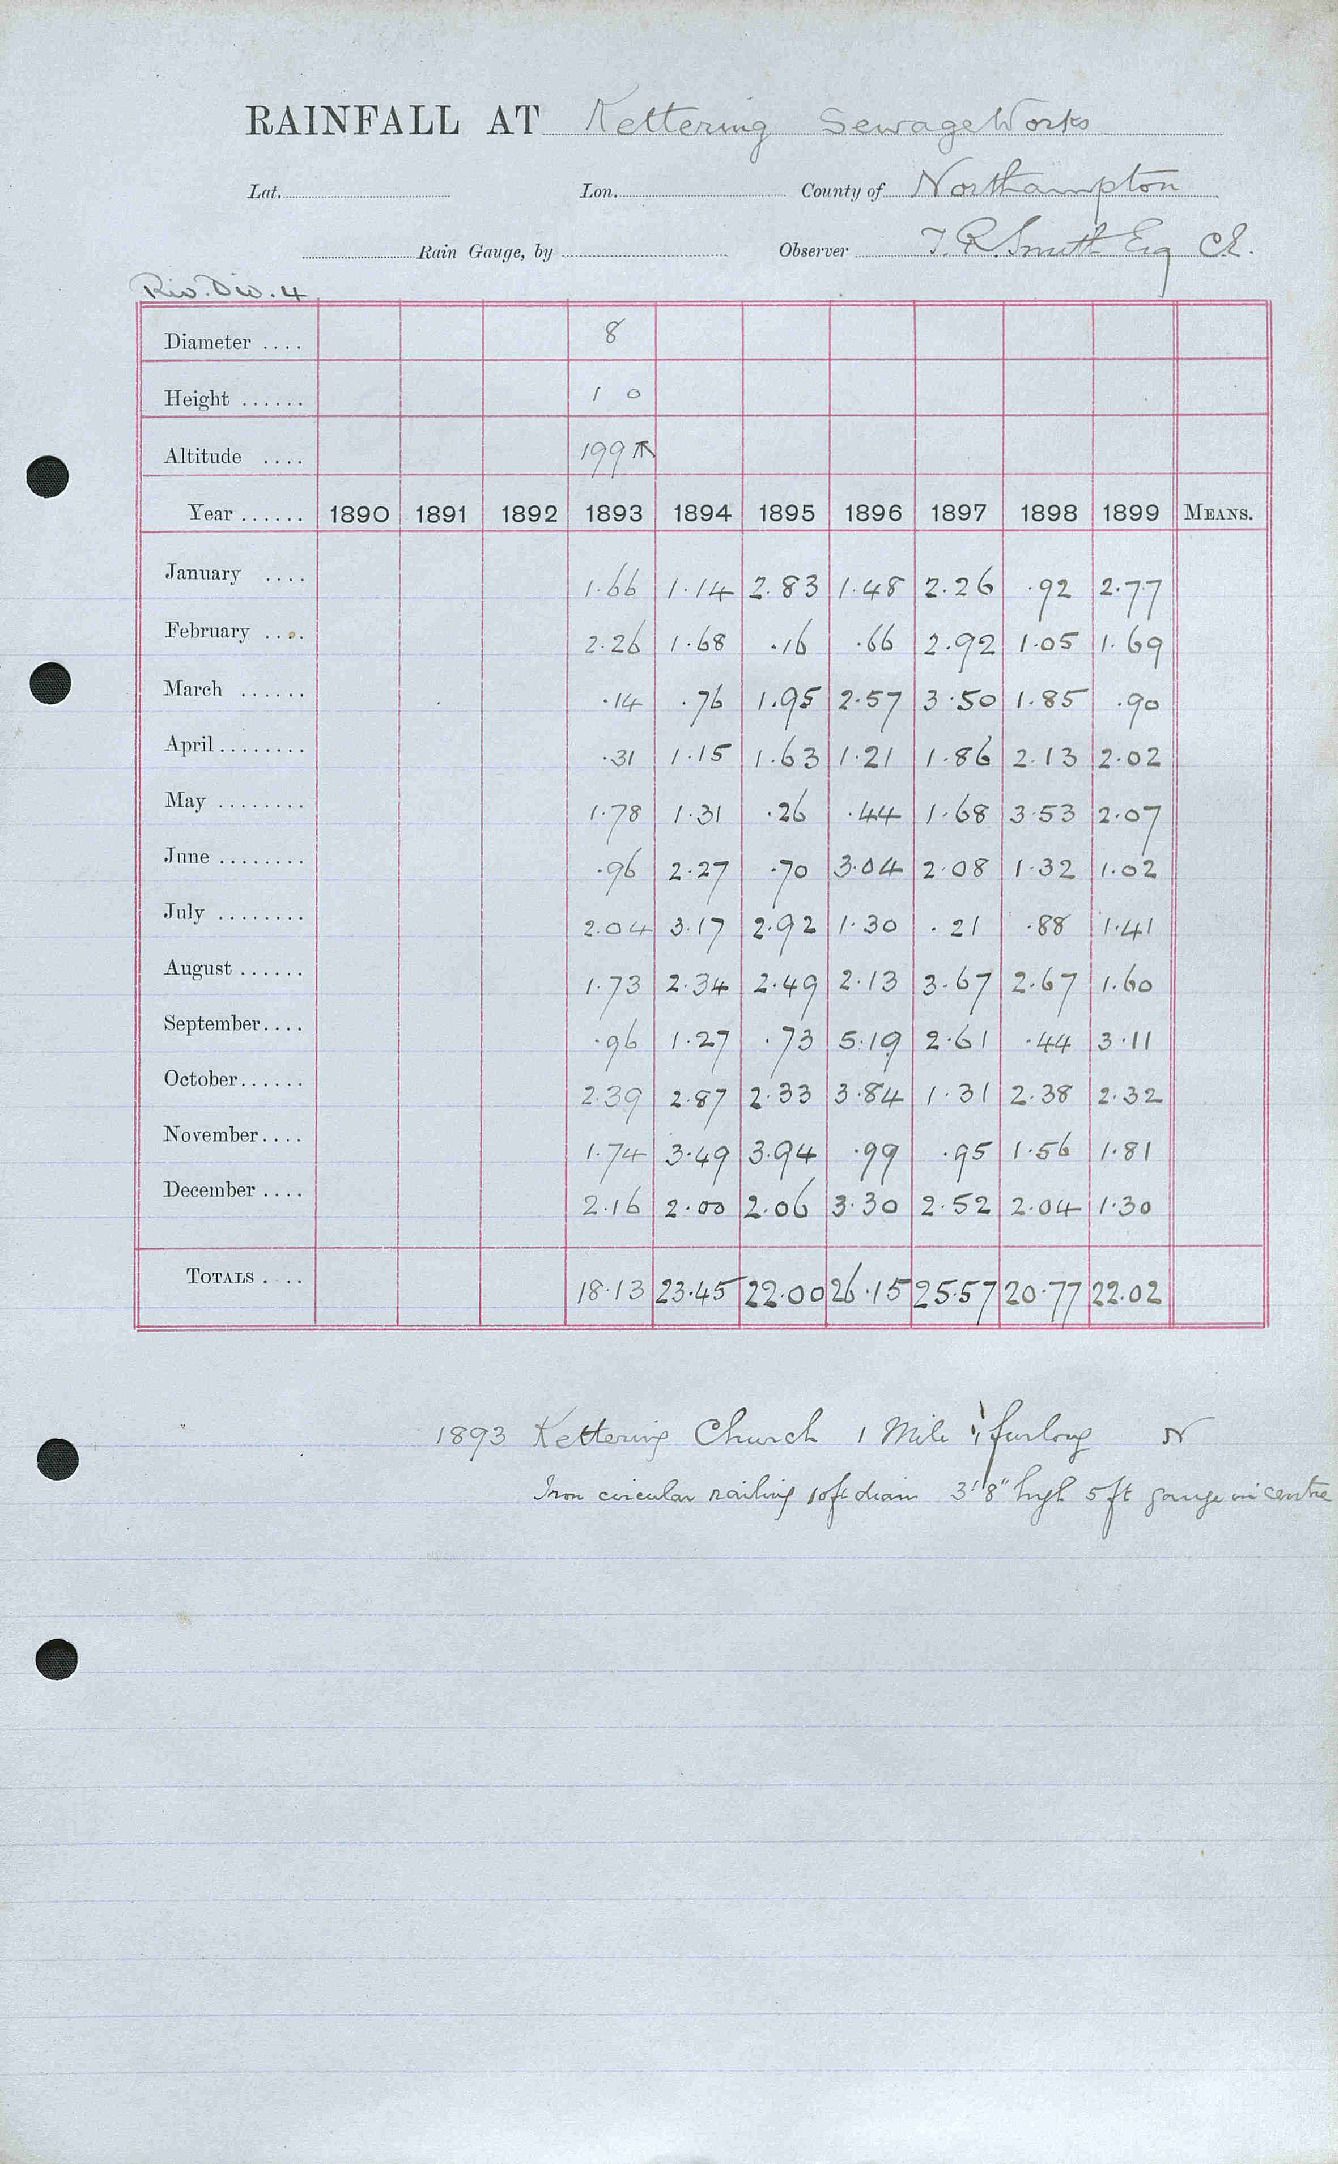 RAINFALL AT Kettering Sewage Works
Lat. Lon. County of Northampton
Rain Gauge, by Observer T. R. Smith Esq C.E.
Riv. Div. 4.
Diameter .... 8
Height ...... 1 0
Altitude .... 199
Year ...... 1890 1891 1892 1893 1894 1895 1896 1897 1898 1899 MEANS.
January .... 1.66 1.14 2.83 1.48 2.26 .92 2.77
February .... 2.26 1.68 .16 .66 2.92 1.05 1.69
March ...... .14 .76 1.95 2.57 3.50 1.85 .90
April ........ .31 1.15 1.63 1.21 1.86 2.13 2.02
May ........ 1.78 1.31 .26 .44 1.68 3.53 2.07
June ........ .96 2.27 .70 3.04 2.08 1.32 1.02
July ........ 2.04 3.17 2.92 1.30 .21 .88 1.41
August ...... 1.73 2.34 2.49 2.13 3.67 2.67 1.60
September.... .96 1.27 .73 5.19 2.61 .44 3.11
October...... 2.39 2.87 2.33 3.84 1.31 2.38 2.32
November.... 1.74 3.49 3.94 .99 .95 1.56 1.81
December .... 2.16 2.00 2.06 3.30 2.52 2.04 1.30
TOTALS .... 18.13 23.45 22.00 26.15 25.57 20.77 22.02
1893 Kettering Church 1 Mile 1 furlong N
Iron circular railing 10ft diam 3'8" high 5 ft gauge in centre